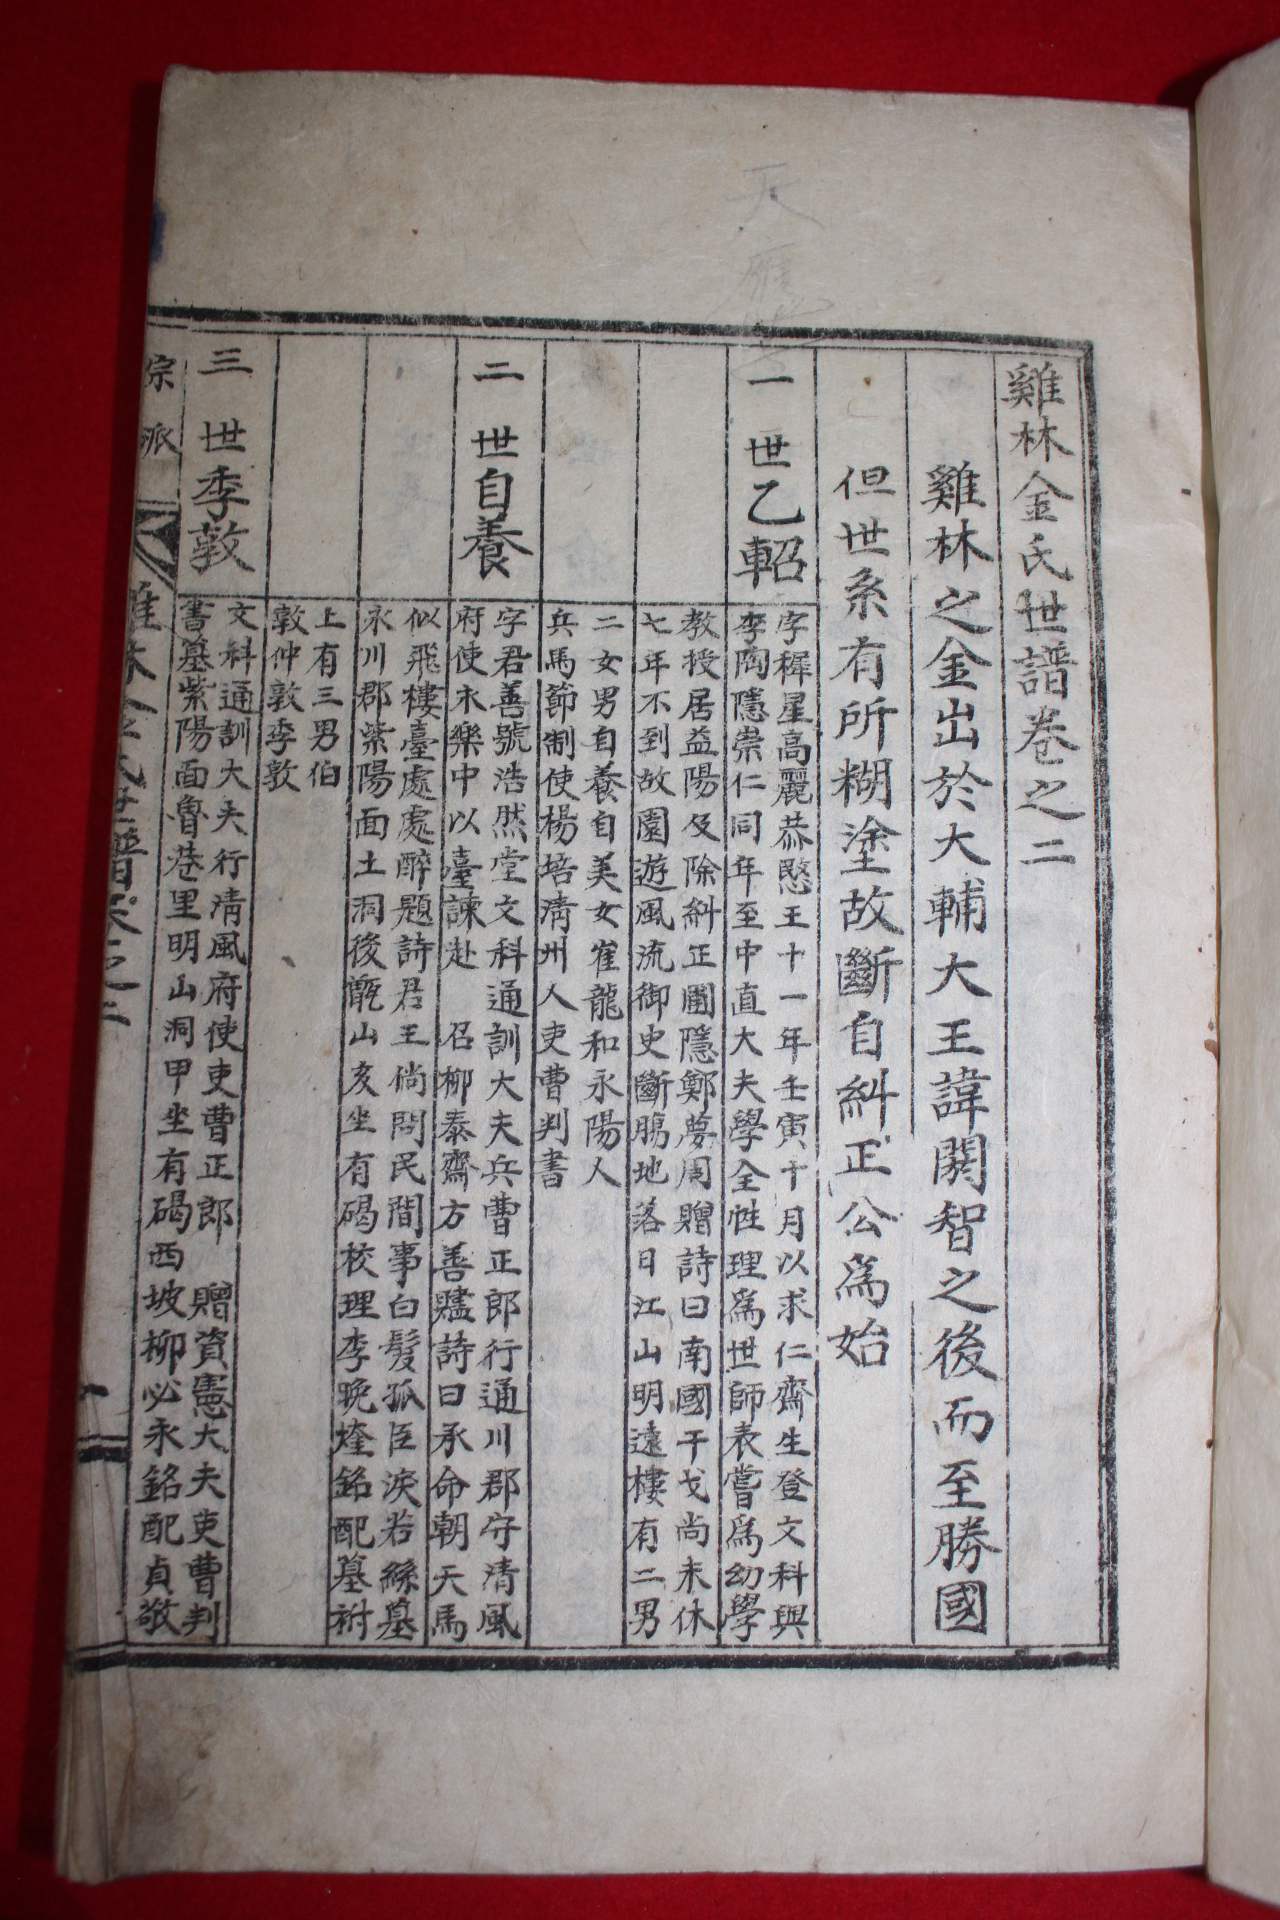 雞林金氏世譜卷之二
雞林之金出於大輔大王諱閼智之後而至勝國
但世系有所糊塗故斷自糾正公爲始
一世乙軺
字穉星高麗恭愍王十一年壬寅十月以求仁齋生登文科與
李陶隱崇仁同年至中直大夫學全性理爲世師表嘗爲幼學
教授居益陽及除糾正圃隱鄭夢周贈詩曰南國干戈尚未休
七年不到故園遊風流御史斷腸地落日江山明遠樓有二男
二女男自養自美女崔龍和永陽人
兵馬節制使楊培淸州人吏曹判書
二世自養
字君善號浩然堂文科通訓大夫兵曹正郎行通川郡守清風
府使永樂中以臺諫赴 召柳泰齋方善贐詩曰承命朝天馬
似飛樓臺處處醉題詩君王倘問民間事白髮孤臣淚若絲墓
永川郡紫陽面土洞後甑山亥坐有碣校理李晚煃銘配墓祔
上有三男伯
敦仲敦季敦
三世季敦
文科通訓大夫行清風府使吏曹正郎 贈資憲大夫吏曹判
書墓紫陽面魯巷里明山洞甲坐有碣西坡柳必永銘配貞敬
宗派
雞林金氏世譜卷之二
一